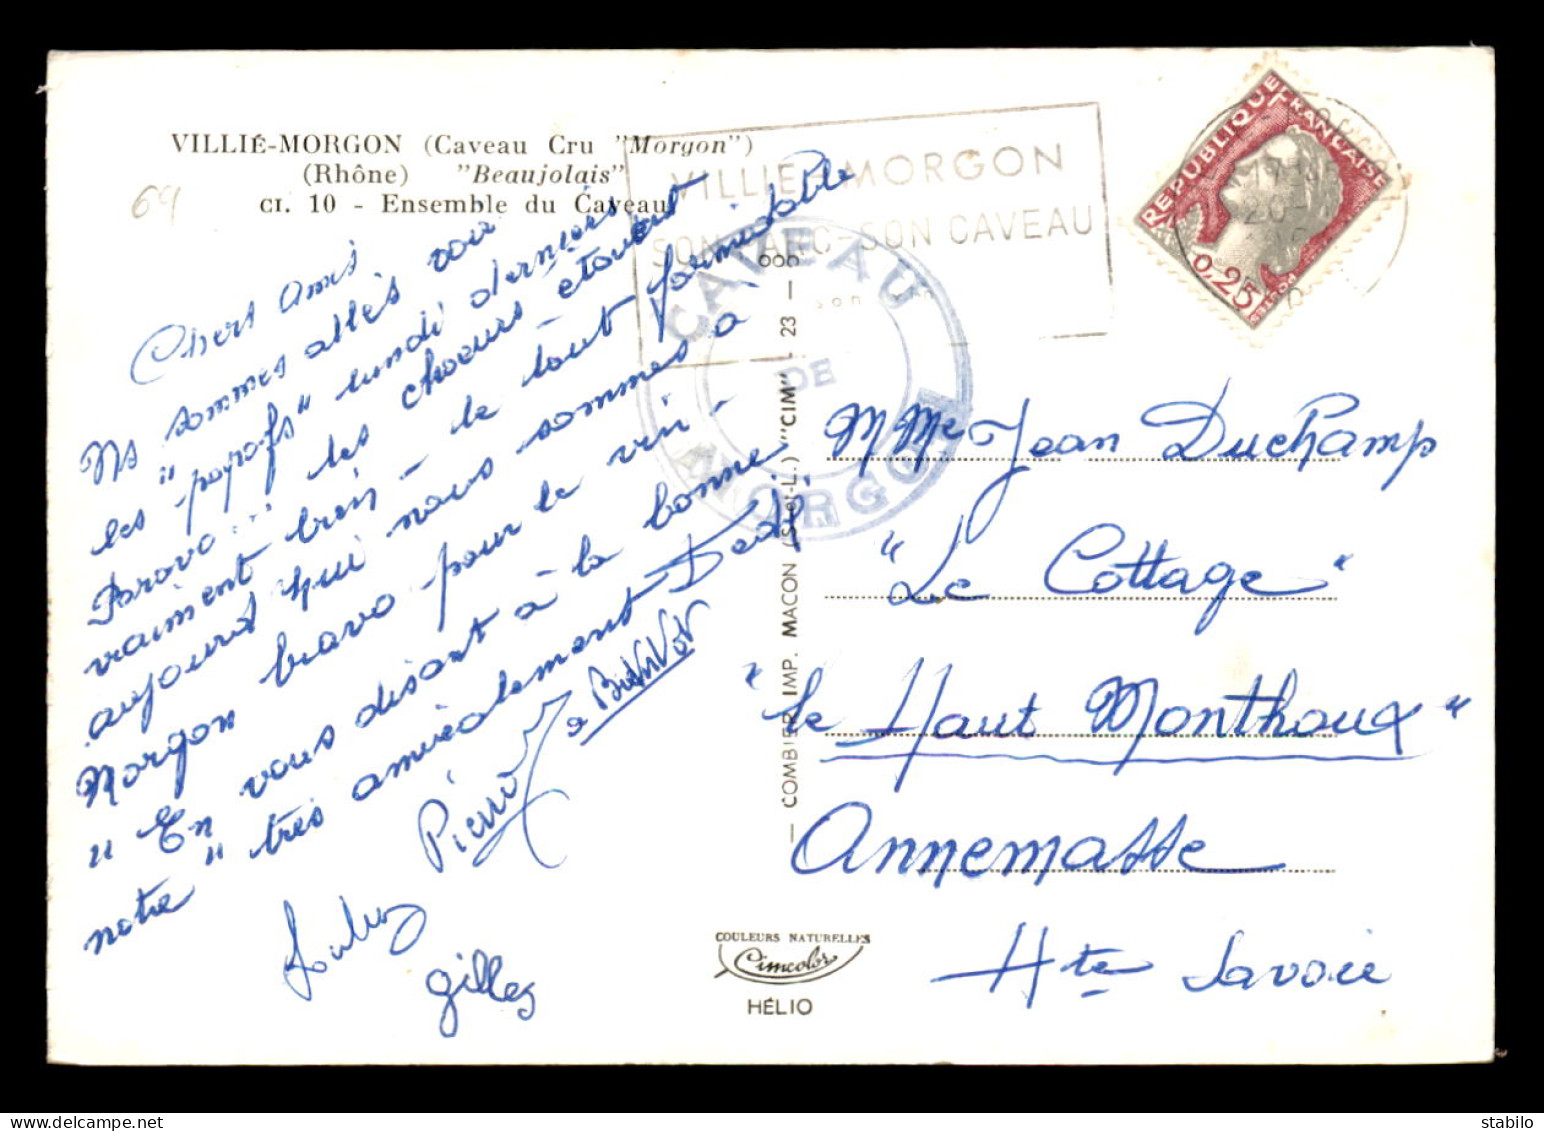 VILLIÉ-MORGON (Caveau Cru "Morgon")
(Rhône) "Beaujolais"
CI. 10 - Ensemble du Caveau
64
VILLIÉ-MORGON
SON PARC - SON CAVEAU
CAVEAU
DE
MORGON
RÉPUBLIQUE FRANÇAISE
0,25
POSTES
Chers Amis
Ns sommes allés voir
les "profs" lundi derniers
Bravo... les choeurs étaient
vraiment bien - le tout formidable
aujourd'hui nous sommes à
Morgon bravo pour le vin -
" En vous disant à la bonne
notre " très amicalement Dédé
Pierre
Gilles
COMBIER IMP. MACON (S.-et-L.) "CIM" - 23 -
M Me Jean Duchamp
"Le Cottage"
"le Haut Monthoux"
Annemasse
Hte Savoie
COULEURS NATURELLES
Cimcolor
HÉLIO
stabilo